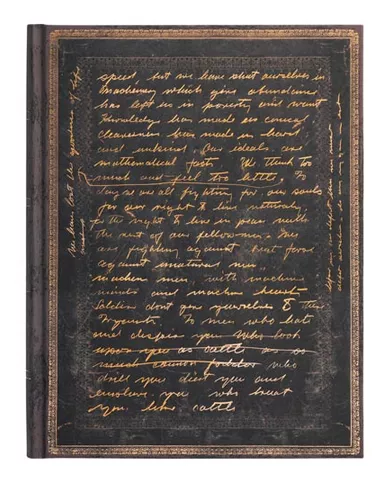 speed, but we have shut ourselves in
Machinery which gives abundance
has left us in poverty, and want
Knowledge has made us cynical
cleverness has made us hard
and unkind. Our ideals are
mathematical fast. We think too
much and feel too little. To
day we are all fighting for our souls
for our right to live naturally,
for the right to live in peace with
the rest of our fellow men. We
are fighting against
against unnatural men
machine men, with machine
minds and machine hearts
Soldiers dont give yourselves to these
To men who hate
and despise you. Who look
upon you as cattle as as
cannon fodder who
drill you diet you and
you who treat
you like cattle
We have lost the goodness of life